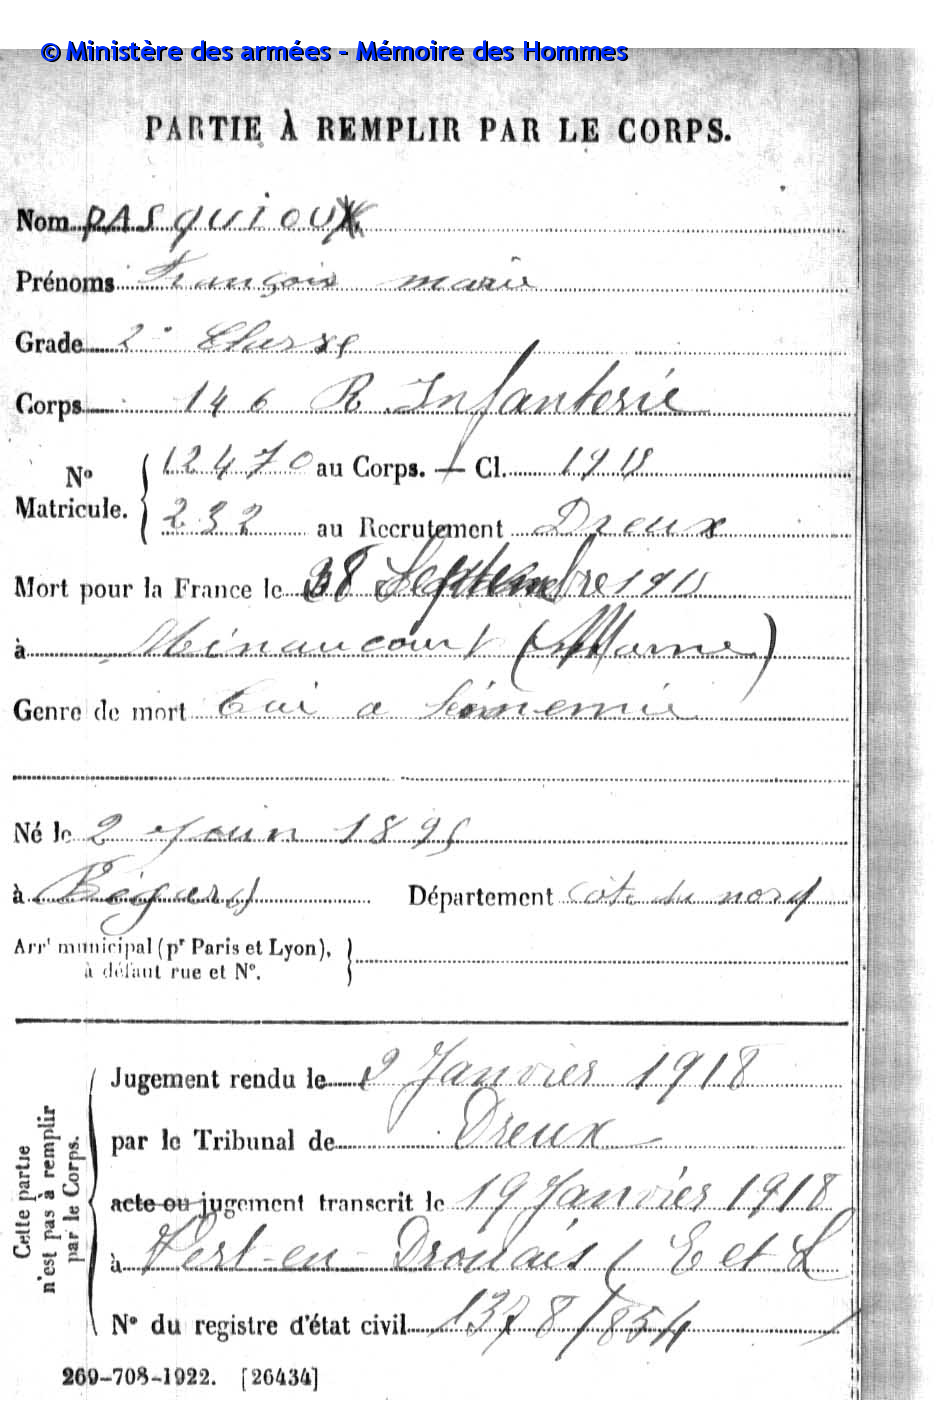 © Ministère des armées - Mémoire des Hommes
PARTIE À REMPLIR PAR LE CORPS.
Nom PASQUIOU
Prénoms François marie
Grade 2e Classe
Corps 146 R. Infanterie
12470 au Corps. — Cl. 1915
N° Matricule.
232 au Recrutement Dreux
Mort pour la France le 28 Septembre 1915
à Minaucourt (Marne)
Genre de mort Tué a l'énnemie
Né le 2 Juin 1895
à Bégard Département Côte du nord
Arrt municipal (pr Paris et Lyon),
à défaut rue et N°.
Cette partie n'est pas à remplir par le Corps.
Jugement rendu le 2 Janvier 1918
par le Tribunal de Dreux
acte ou jugement transcrit le 19 Janvier 1918
à Vert-en-Drouais (E et L
N° du registre d'état civil 1378/854
269-708-1922. [26434]